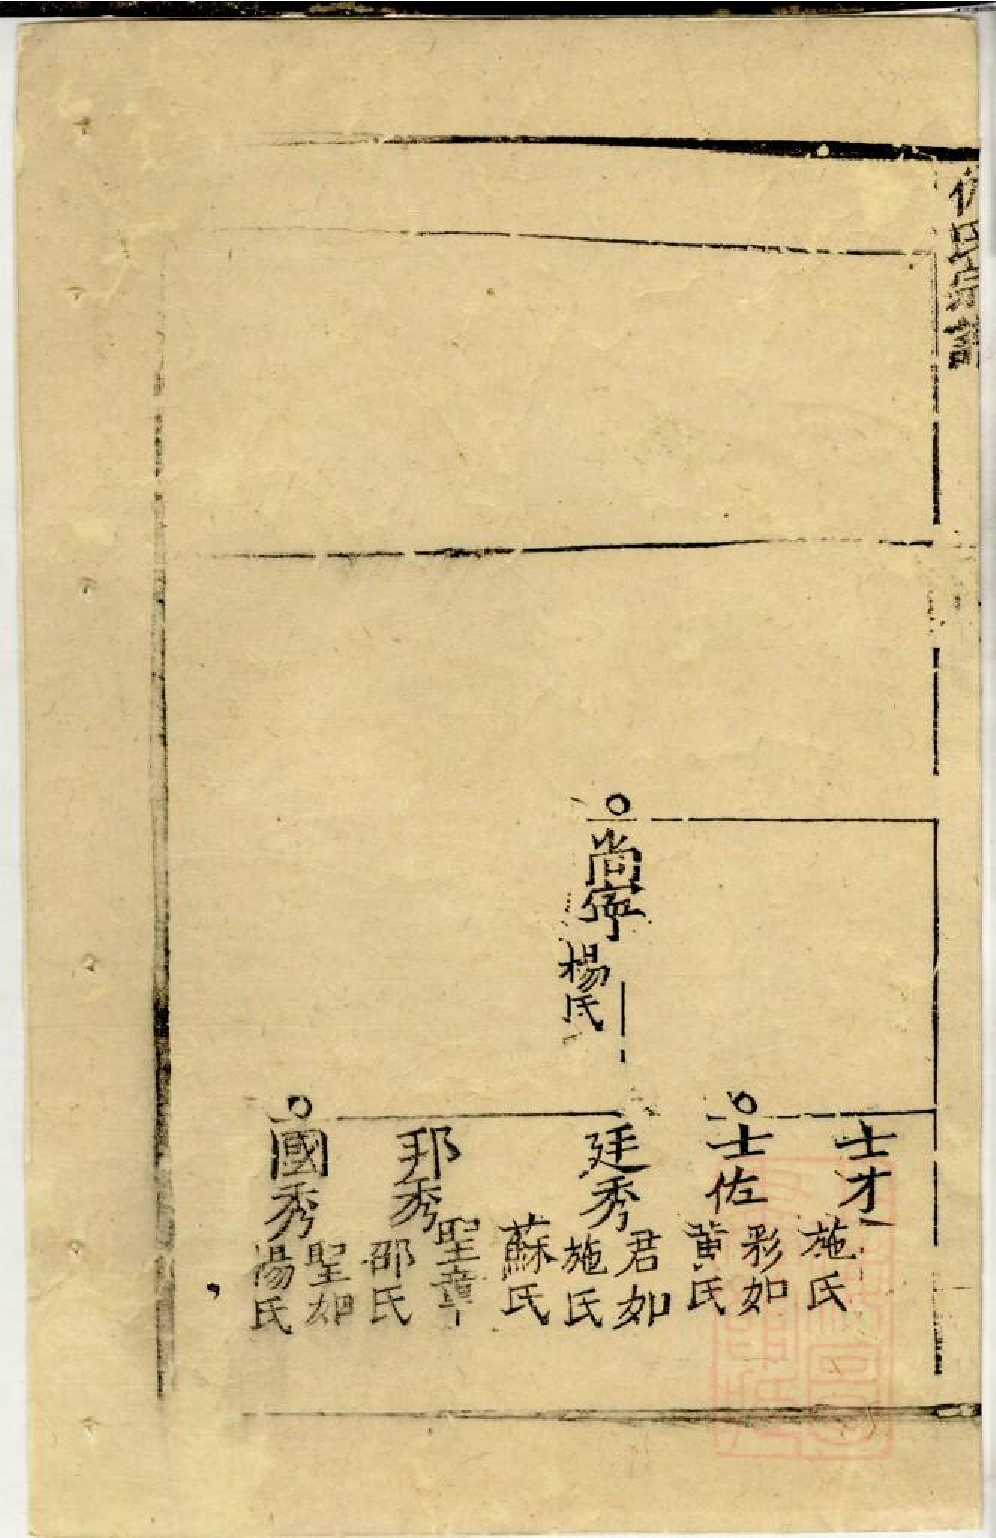 氏宗譜
尚寧
楊氏
士才
施氏
士佐
彩如
黃氏
廷秀
君如
施氏
蘇氏
邦秀
聖章
邵氏
國秀
聖如
湯氏